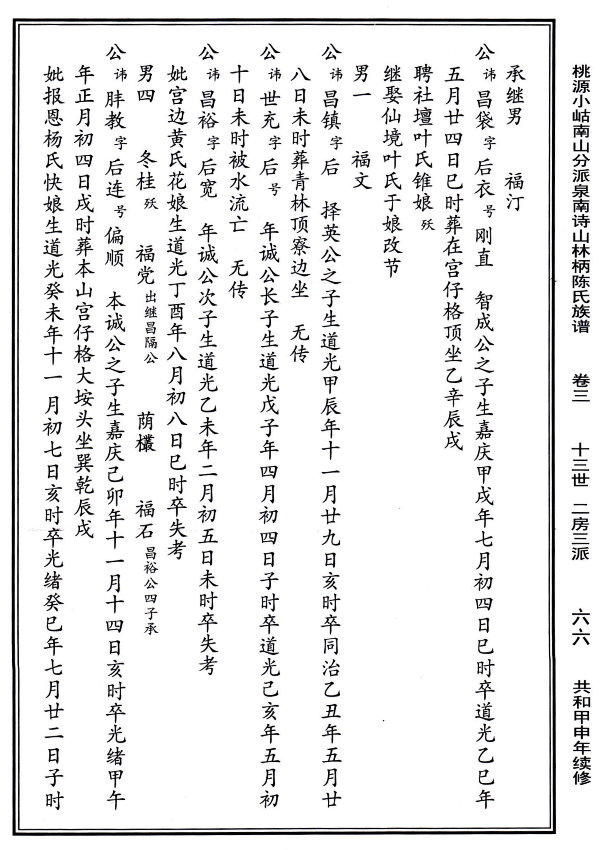 桃源小岵南山分派泉南诗山林柄陈氏族谱 卷三 十三世 二房三派 六六 共和甲申年续修
承继男 福汀
公讳昌袋字后衣号刚直 智成公之子生嘉庆甲戌年七月初四日巳时卒道光乙巳年
五月廿四日巳时葬在宫仔格顶坐乙辛辰戌
聘社壇叶氏锥娘殀
继娶仙境叶氏于娘改节
男一 福文
公讳昌镇字后 择英公之子生道光甲辰年十一月廿九日亥时卒同治乙丑年五月廿
八日未时葬青林顶寮边坐 无传
公讳世充字后号 年诚公长子生道光戊子年四月初四日子时卒道光己亥年五月初
十日未时被水流亡 无传
公讳昌裕字后宽 年诚公次子生道光乙未年二月初五日未时卒失考
妣宫边黄氏花娘生道光丁酉年八月初八日巳时卒失考
男四 冬桂殀 福党出继昌隔公 荫欉 福石昌裕公四子承
公讳胖教字后连号偏顺 本诚公之子生嘉庆己卯年十一月十四日亥时卒光绪甲午
年正月初四日戌时葬本山宫仔格大垵头坐巽乾辰戌
妣报恩杨氏快娘生道光癸未年十一月初七日亥时卒光绪癸巳年七月廿二日子时